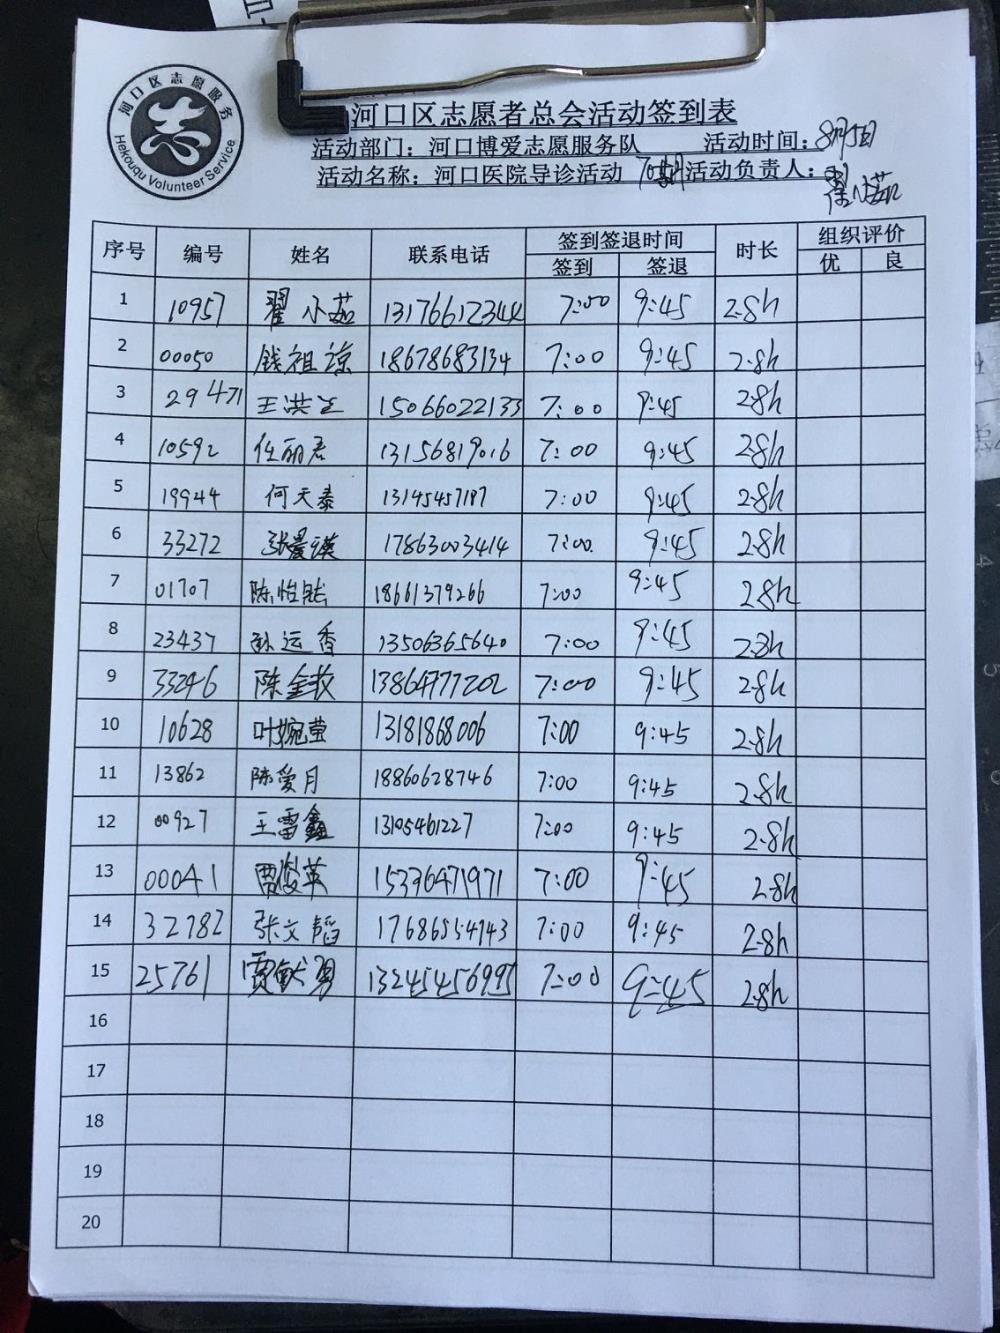 河口区志愿服务
Hekouqu Volunteer Service
河口区志愿者总会活动签到表
活动部门：河口博爱志愿服务队 活动时间：8月5日
活动名称：河口医院导诊活动 活动负责人：翟小茹
序号 编号 姓名 联系电话 签到签退时间 时长 组织评价
签到 签退 优 良
1 10957 翟小茹 13176612344 7:00 9:45 2.8h
2 00050 钱祖谅 18678683134 7:00 9:45 2.8h
3 29471 王洪 15066022133 7:00 9:45 2.8h
4 10592 任丽君 13156819016 7:00 9:45 2.8h
5 19944 何天泰 13145457187 7:00 9:45 2.8h
6 33272 张景瑛 17863003414 7:00 9:45 2.8h
7 01707 陈怡然 18661379266 7:00 9:45 2.8h
8 23437 孙运香 13506365640 7:00 9:45 2.8h
9 33246 陈金牧 13864777202 7:00 9:45 2.8h
10 10628 叶婉莹 13181868006 7:00 9:45 2.8h
11 13862 陈爱月 18860628746 7:00 9:45 2.8h
12 00927 王雷鑫 13105461227 7:00 9:45 2.8h
13 00041 贾俊英 15396471971 7:00 9:45 2.8h
14 32782 张文韬 17686554743 7:00 9:45 2.8h
15 25761 贾献勇 13245456995 7:00 9:45 2.8h
16
17
18
19
20